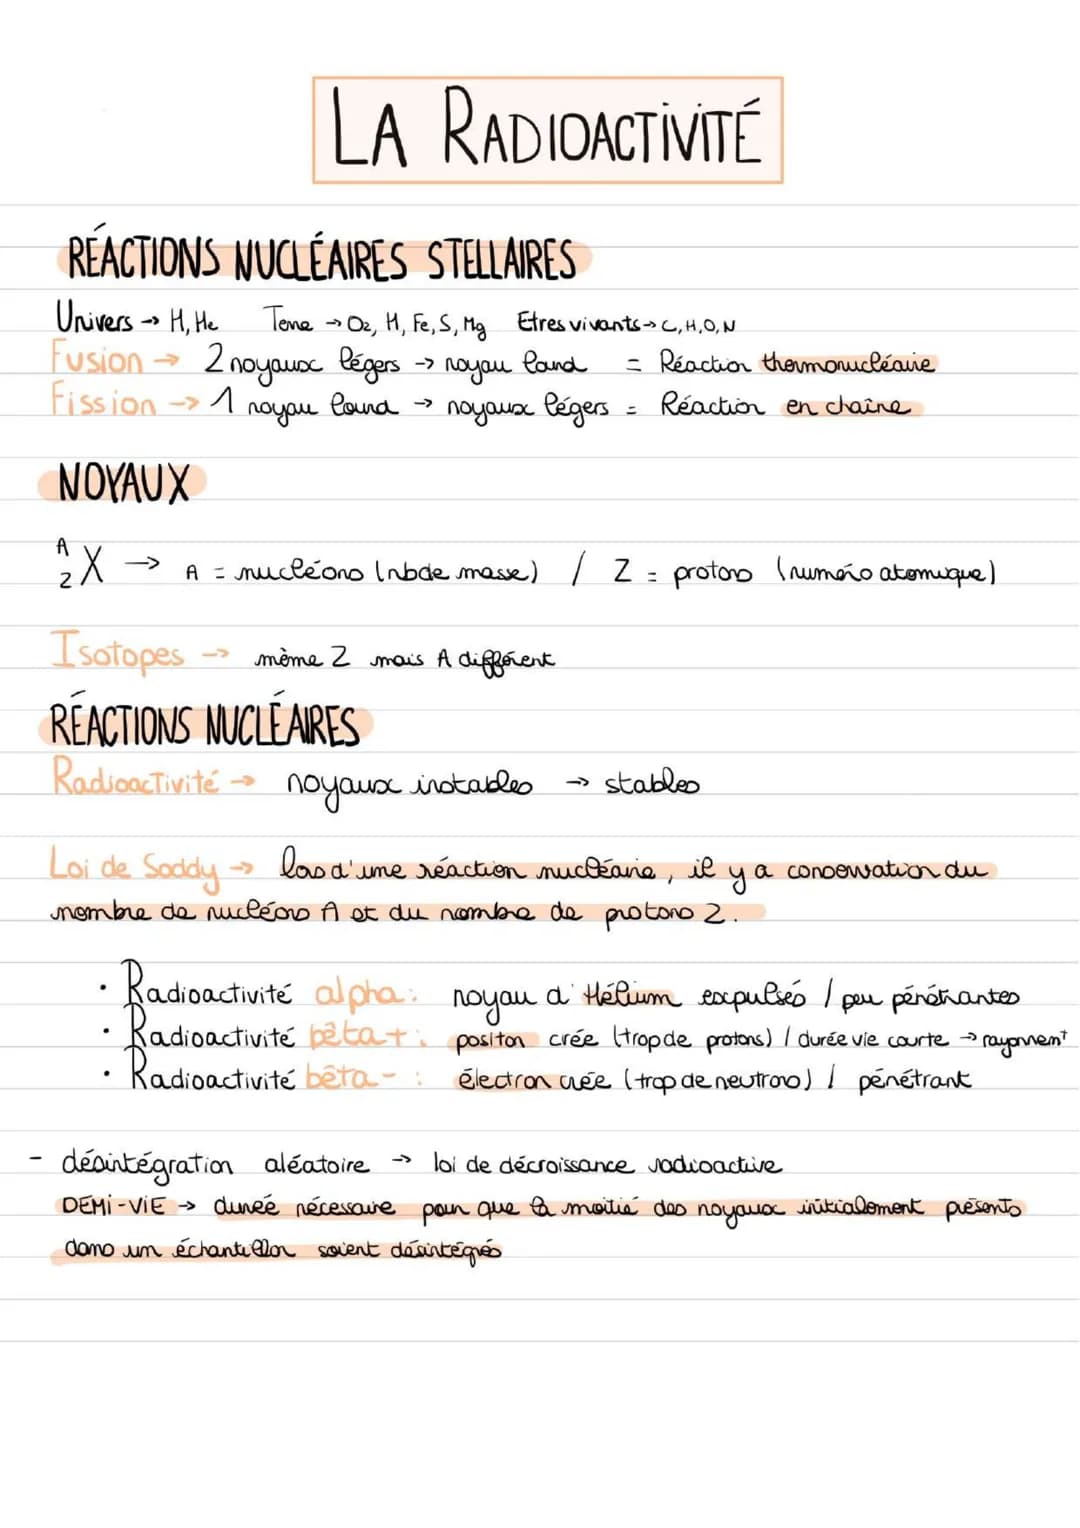 LA RADIOACTIVITÉ
RÉACTIONS NUCLÉAIRES STELLAIRES
Univers → H, He Terre → O2, H, Fe, S, Mg Etres vivants → C, H, O, N
Fusion → 2 noyaux légers → noyau lourd = Réaction thermonucléaire
Fission → 1 noyau lourd → noyaux légers = Réaction en chaîne
NOYAUX
A
Z X → A = nucléons (nb de masse) / Z = protons (numéro atomique)
Isotopes → même Z mais A différent
RÉACTIONS NUCLÉAIRES
Radioactivité → noyaux instables → stables
Loi de Soddy → lors d'une réaction nucléaire, il y a conservation du
nombre de nucléons A et du nombre de protons Z.
• Radioactivité alpha : noyau d'Hélium expulsés / peu pénétrantes
• Radioactivité bêta + : positon crée (trop de protons) / durée vie courte → rayonnemt
• Radioactivité bêta - : électron créé (trop de neutrons) / pénétrant
- désintégration aléatoire → loi de décroissance radioactive
DEMI-VIE → dureé nécessaire pour que la moitié des noyaux initialement présents
dans un échantillon soient désintégrés